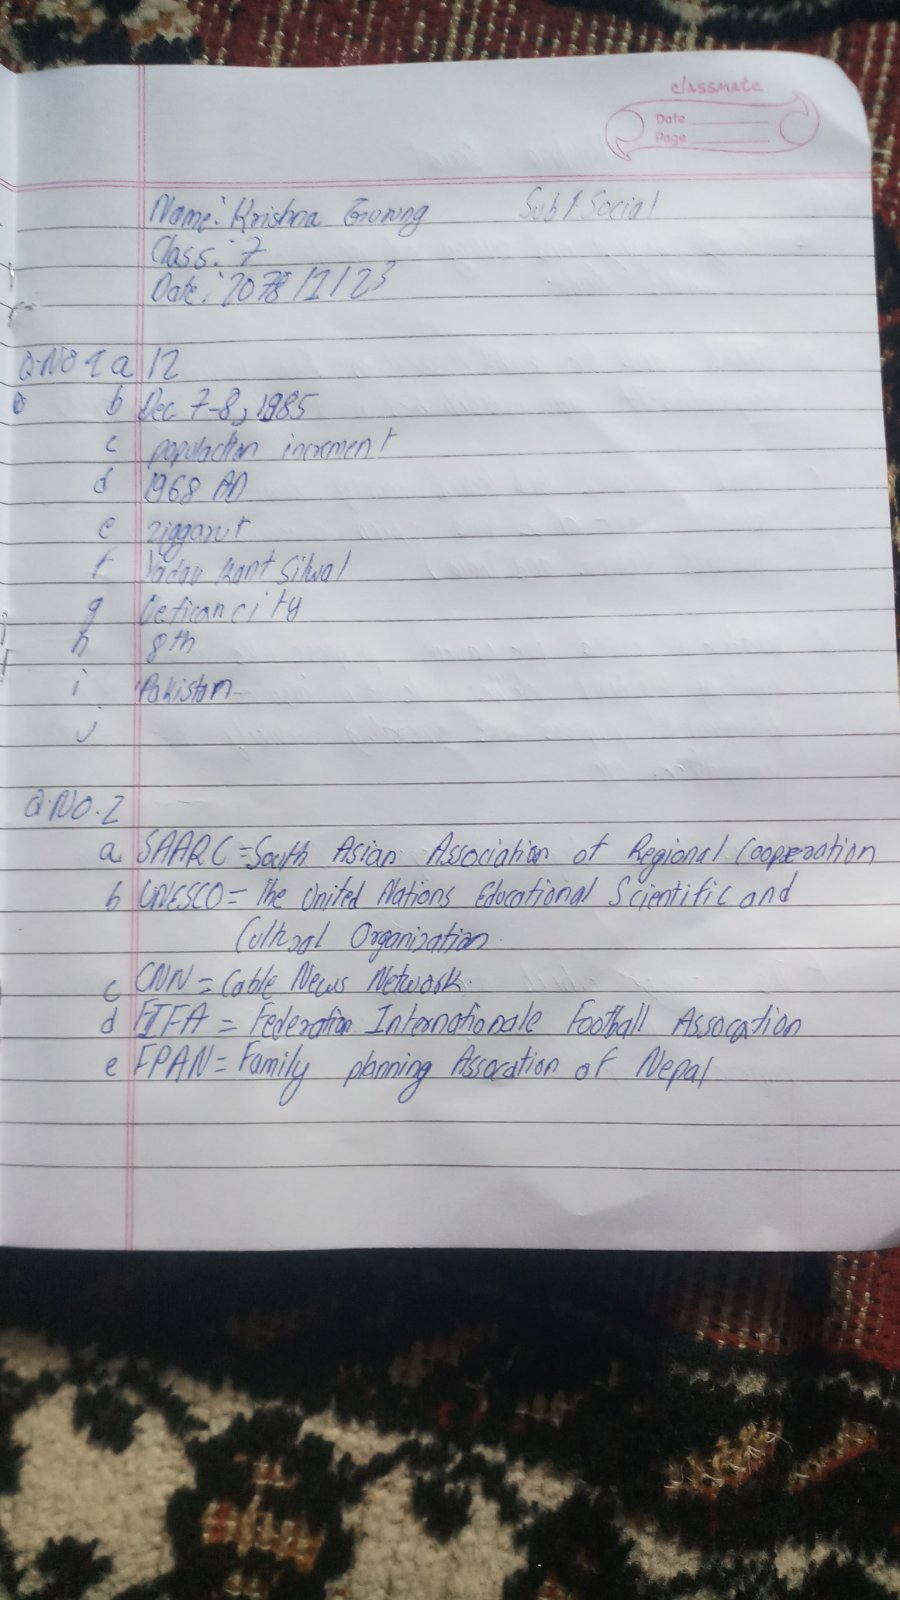 classmate
Date
Page
Name: Krishna Gurung Sub: Social
Class: 7
Date: 2078/1/23
Q.No 1 a 12
b Dec 7-8, 1985
c population increment
d 1968 AD
e ziggarut
f Yadav Kant Silwal
g Vetican city
h 8th
i Pakistan
j
Q.No.2
a SAARC = South Asian Association of Regional Cooperation
b UNESCO = The United Nations Educational Scientific and
Cultural Organization.
c CNN = Cable News Network.
d FIFA = Federation Internationale Football Assocation
e FPAN = Family planning Assocation of Nepal